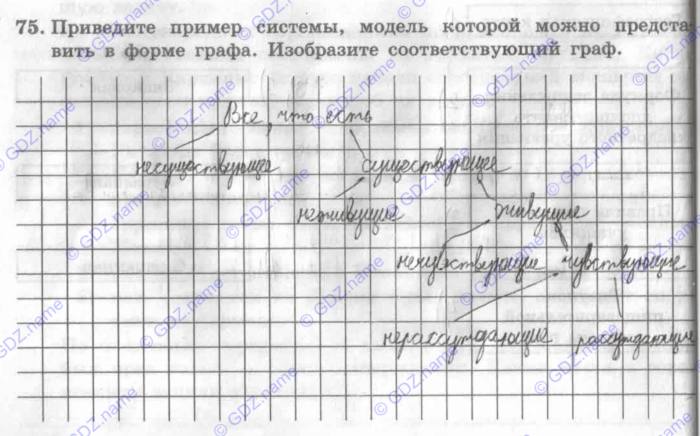 75. Приведите пример системы, модель которой можно предста
вить в форме графа. Изобразите соответствующий граф.
Все, что есть
несуществующее существующее
неживущие живущие
нечувствующие чувствующие
нерассуждающие рассуждающие
© GDZ.name